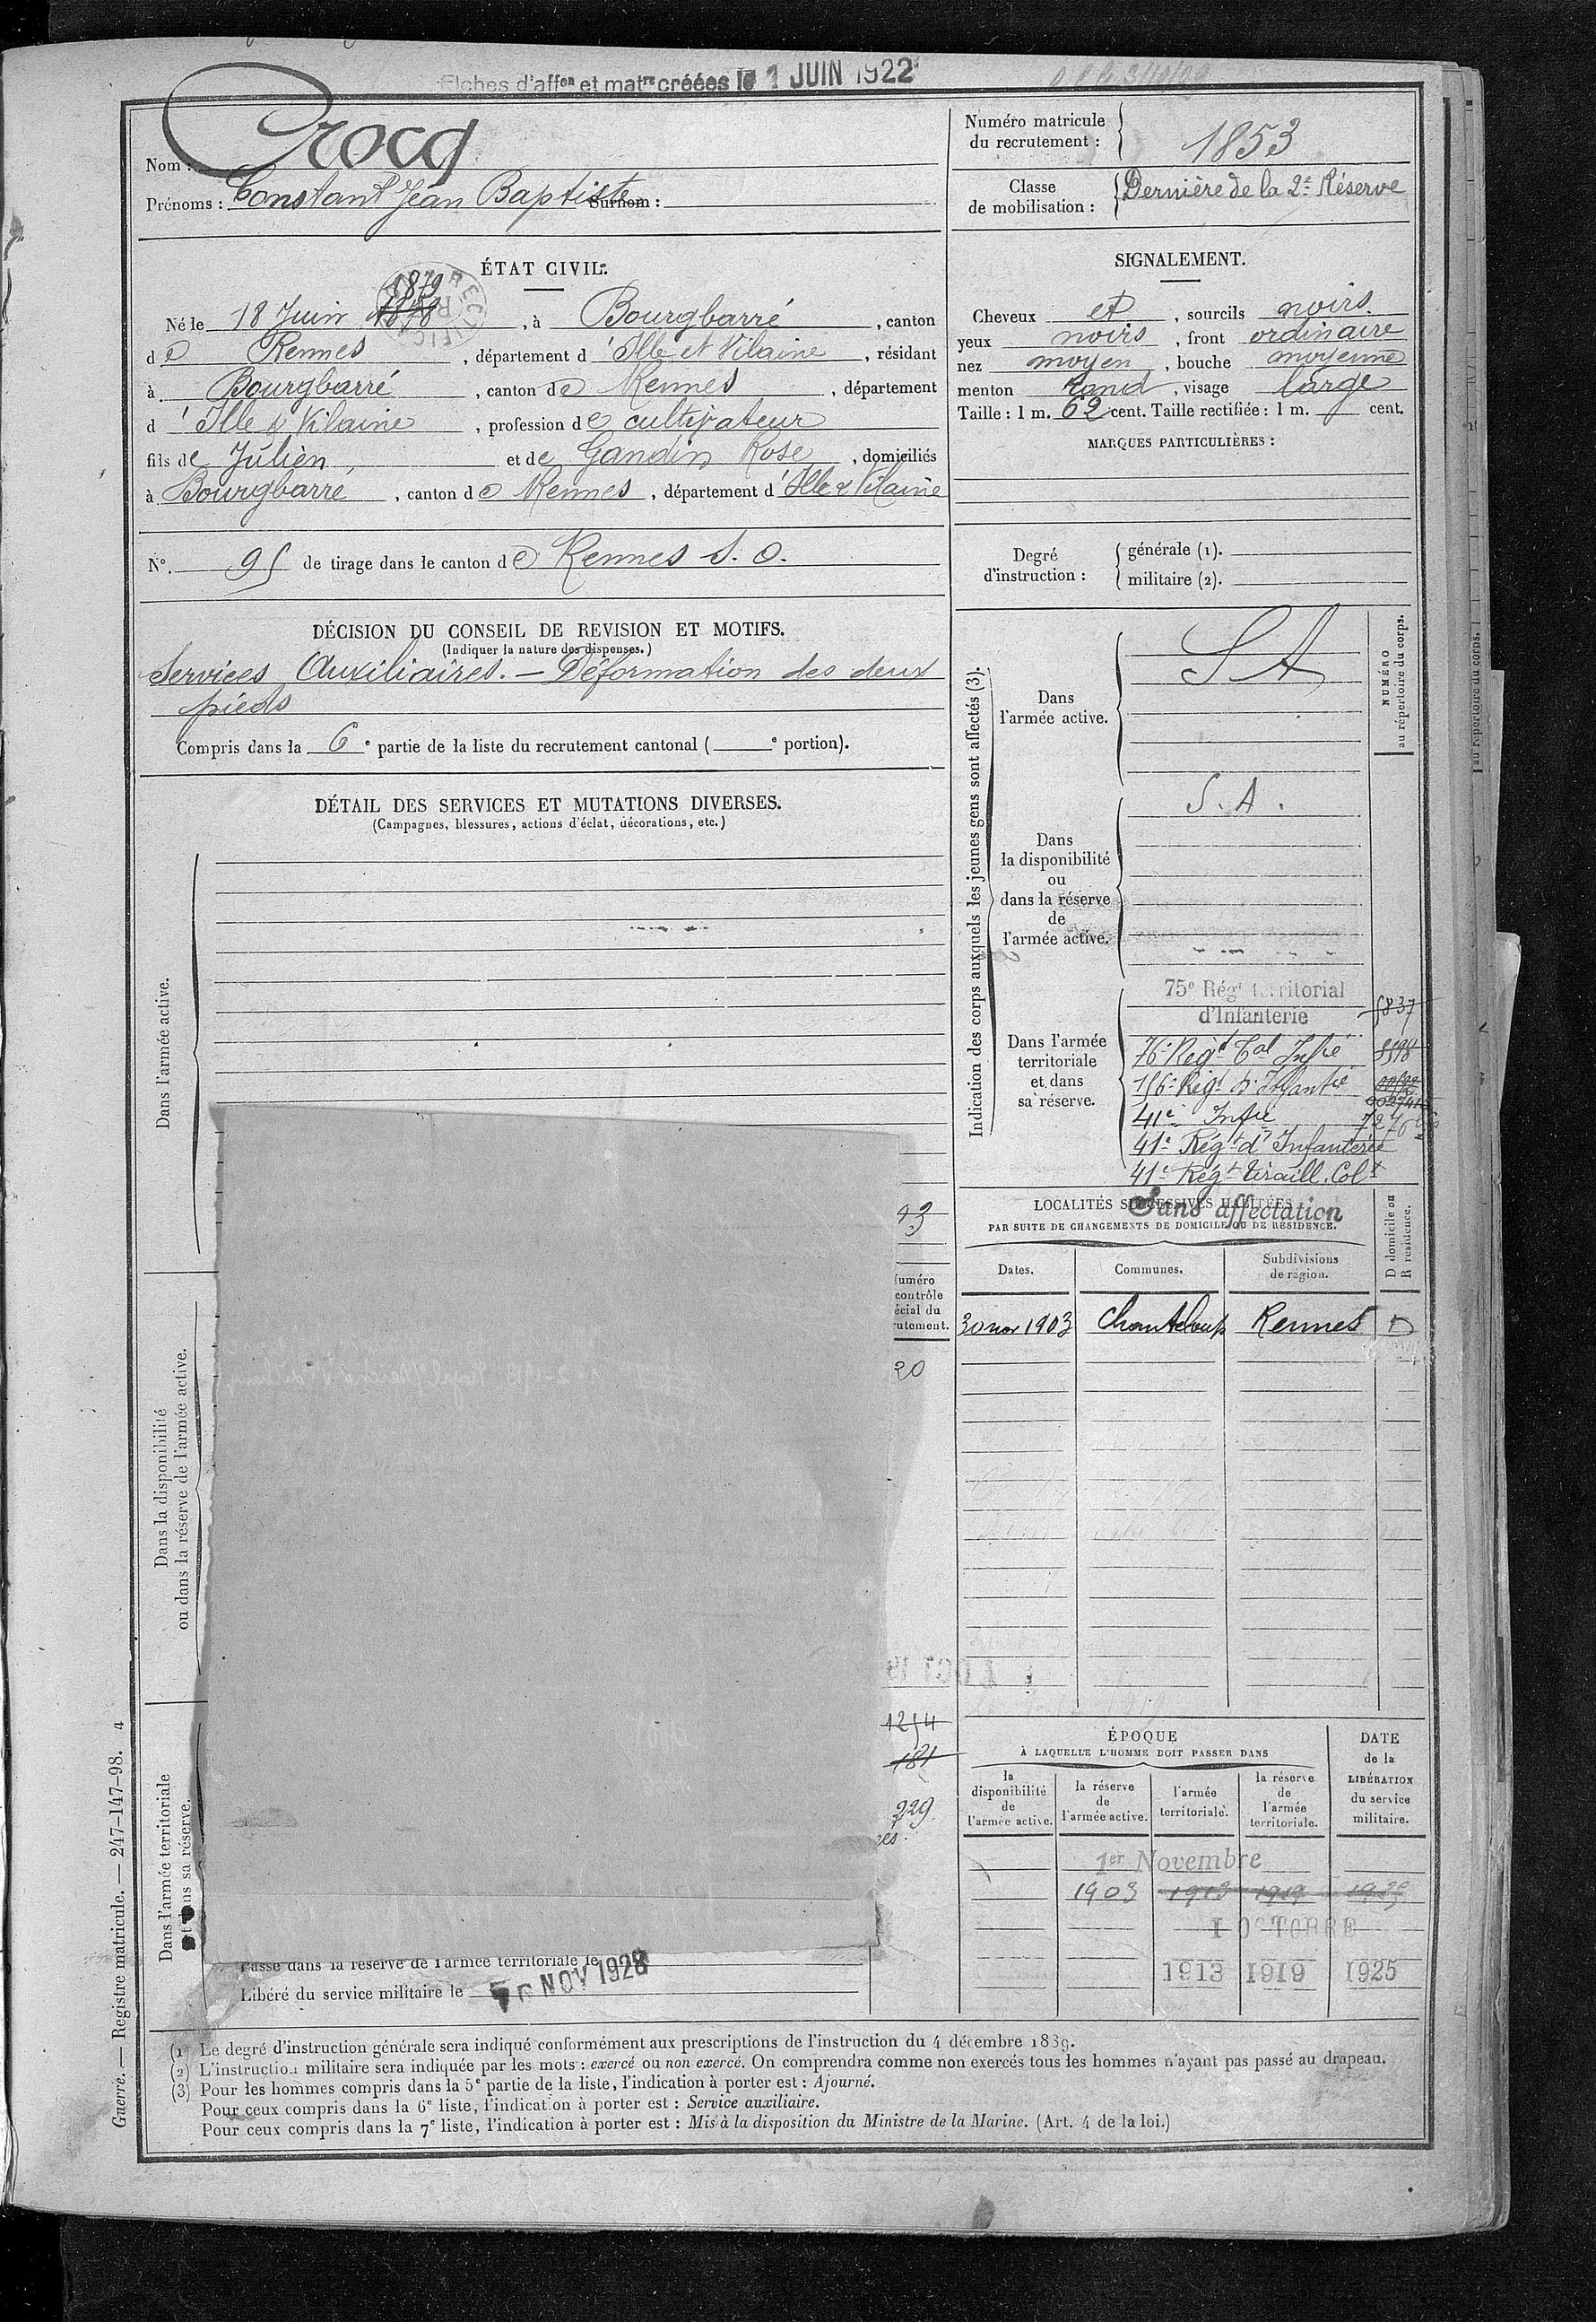 Fiches d'affon et matre créées le 1 JUIN 1922
Nom : Crocq
Prénoms : Constant Jean Baptiste Surnom :
Numéro matricule du recrutement : 1853
Classe de mobilisation : Dernière de la 2e Réserve
ÉTAT CIVIL.
1879
Né le 18 Juin 1878, à Bourgbarré, canton
de Rennes, département d'Ille et Vilaine, résidant
à Bourgbarré, canton de Rennes, département
d'Ille & Vilaine, profession de cultivateur
fils de Julien et de Gandin Rose, domiciliés
à Bourgbarré, canton de Rennes, département d'Ille & Vilaine
N° 95 de tirage dans le canton de Rennes S. O.
DÉCISION DU CONSEIL DE REVISION ET MOTIFS.
(Indiquer la nature des dispenses.)
Services Auxiliaires. — Déformation des deux
pieds
Compris dans la 6e partie de la liste du recrutement cantonal ( e portion).
DÉTAIL DES SERVICES ET MUTATIONS DIVERSES.
(Campagnes, blessures, actions d'éclat, décorations, etc.)
Dans l'armée active.
Dans la disponibilité
ou dans la réserve de l'armée active.
Dans l'armée territoriale
et dans sa réserve.
93
uméro
contrôle
écial du
utement.
20
1254
181
929
Passé dans la réserve de l'armée territoriale le
Libéré du service militaire le NOV 1928
SIGNALEMENT.
Cheveux et, sourcils noirs.
yeux noirs, front ordinaire
nez moyen, bouche moyenne
menton rond, visage large
Taille : 1 m. 62 cent. Taille rectifiée : 1 m. cent.
MARQUES PARTICULIÈRES :
Degré d'instruction :
générale (1).
militaire (2).
Indication des corps auxquels les jeunes gens sont affectés (3).
NUMÉRO
au répertoire du corps.
Dans
l'armée active.
S A
Dans
la disponibilité
ou
dans la réserve
de
l'armée active.
S. A.
Dans l'armée
territoriale
et dans
sa réserve.
75e Régt territorial
d'Infanterie
76e Régt Tal Infie
156e Régt d'Infantie
41e Infie
41e Régt d'Infanterie
41e Régt Tiraill. Colx
Sans affectation
LOCALITÉS SUCCESSIVES HABITÉES
PAR SUITE DE CHANGEMENTS DE DOMICILE OU DE RÉSIDENCE.
D domicile ou
R résidence.
Dates.
Communes.
Subdivisions
de région.
30 nov 1903 Chanteloup Rennes D
ÉPOQUE
À LAQUELLE L'HOMME DOIT PASSER DANS
la
disponibilité
de
l'armée active.
la réserve
de
l'armée active.
l'armée
territoriale.
la réserve
de
l'armée
territoriale.
DATE
de la
LIBÉRATION
du service
militaire.
1er Novembre
1903 1913 1919
1 OCTOBRE
1913 1919 1925
Guerre. — Registre matricule. — 247-147-98. 4
(1) Le degré d'instruction générale sera indiqué conformément aux prescriptions de l'instruction du 4 décembre 1889.
(2) L'instruction militaire sera indiquée par les mots : exercé ou non exercé. On comprendra comme non exercés tous les hommes n'ayant pas passé au drapeau.
(3) Pour les hommes compris dans la 5e partie de la liste, l'indication à porter est : Ajourné.
Pour ceux compris dans la 6e liste, l'indication à porter est : Service auxiliaire.
Pour ceux compris dans la 7e liste, l'indication à porter est : Mis à la disposition du Ministre de la Marine. (Art. 4 de la loi.)